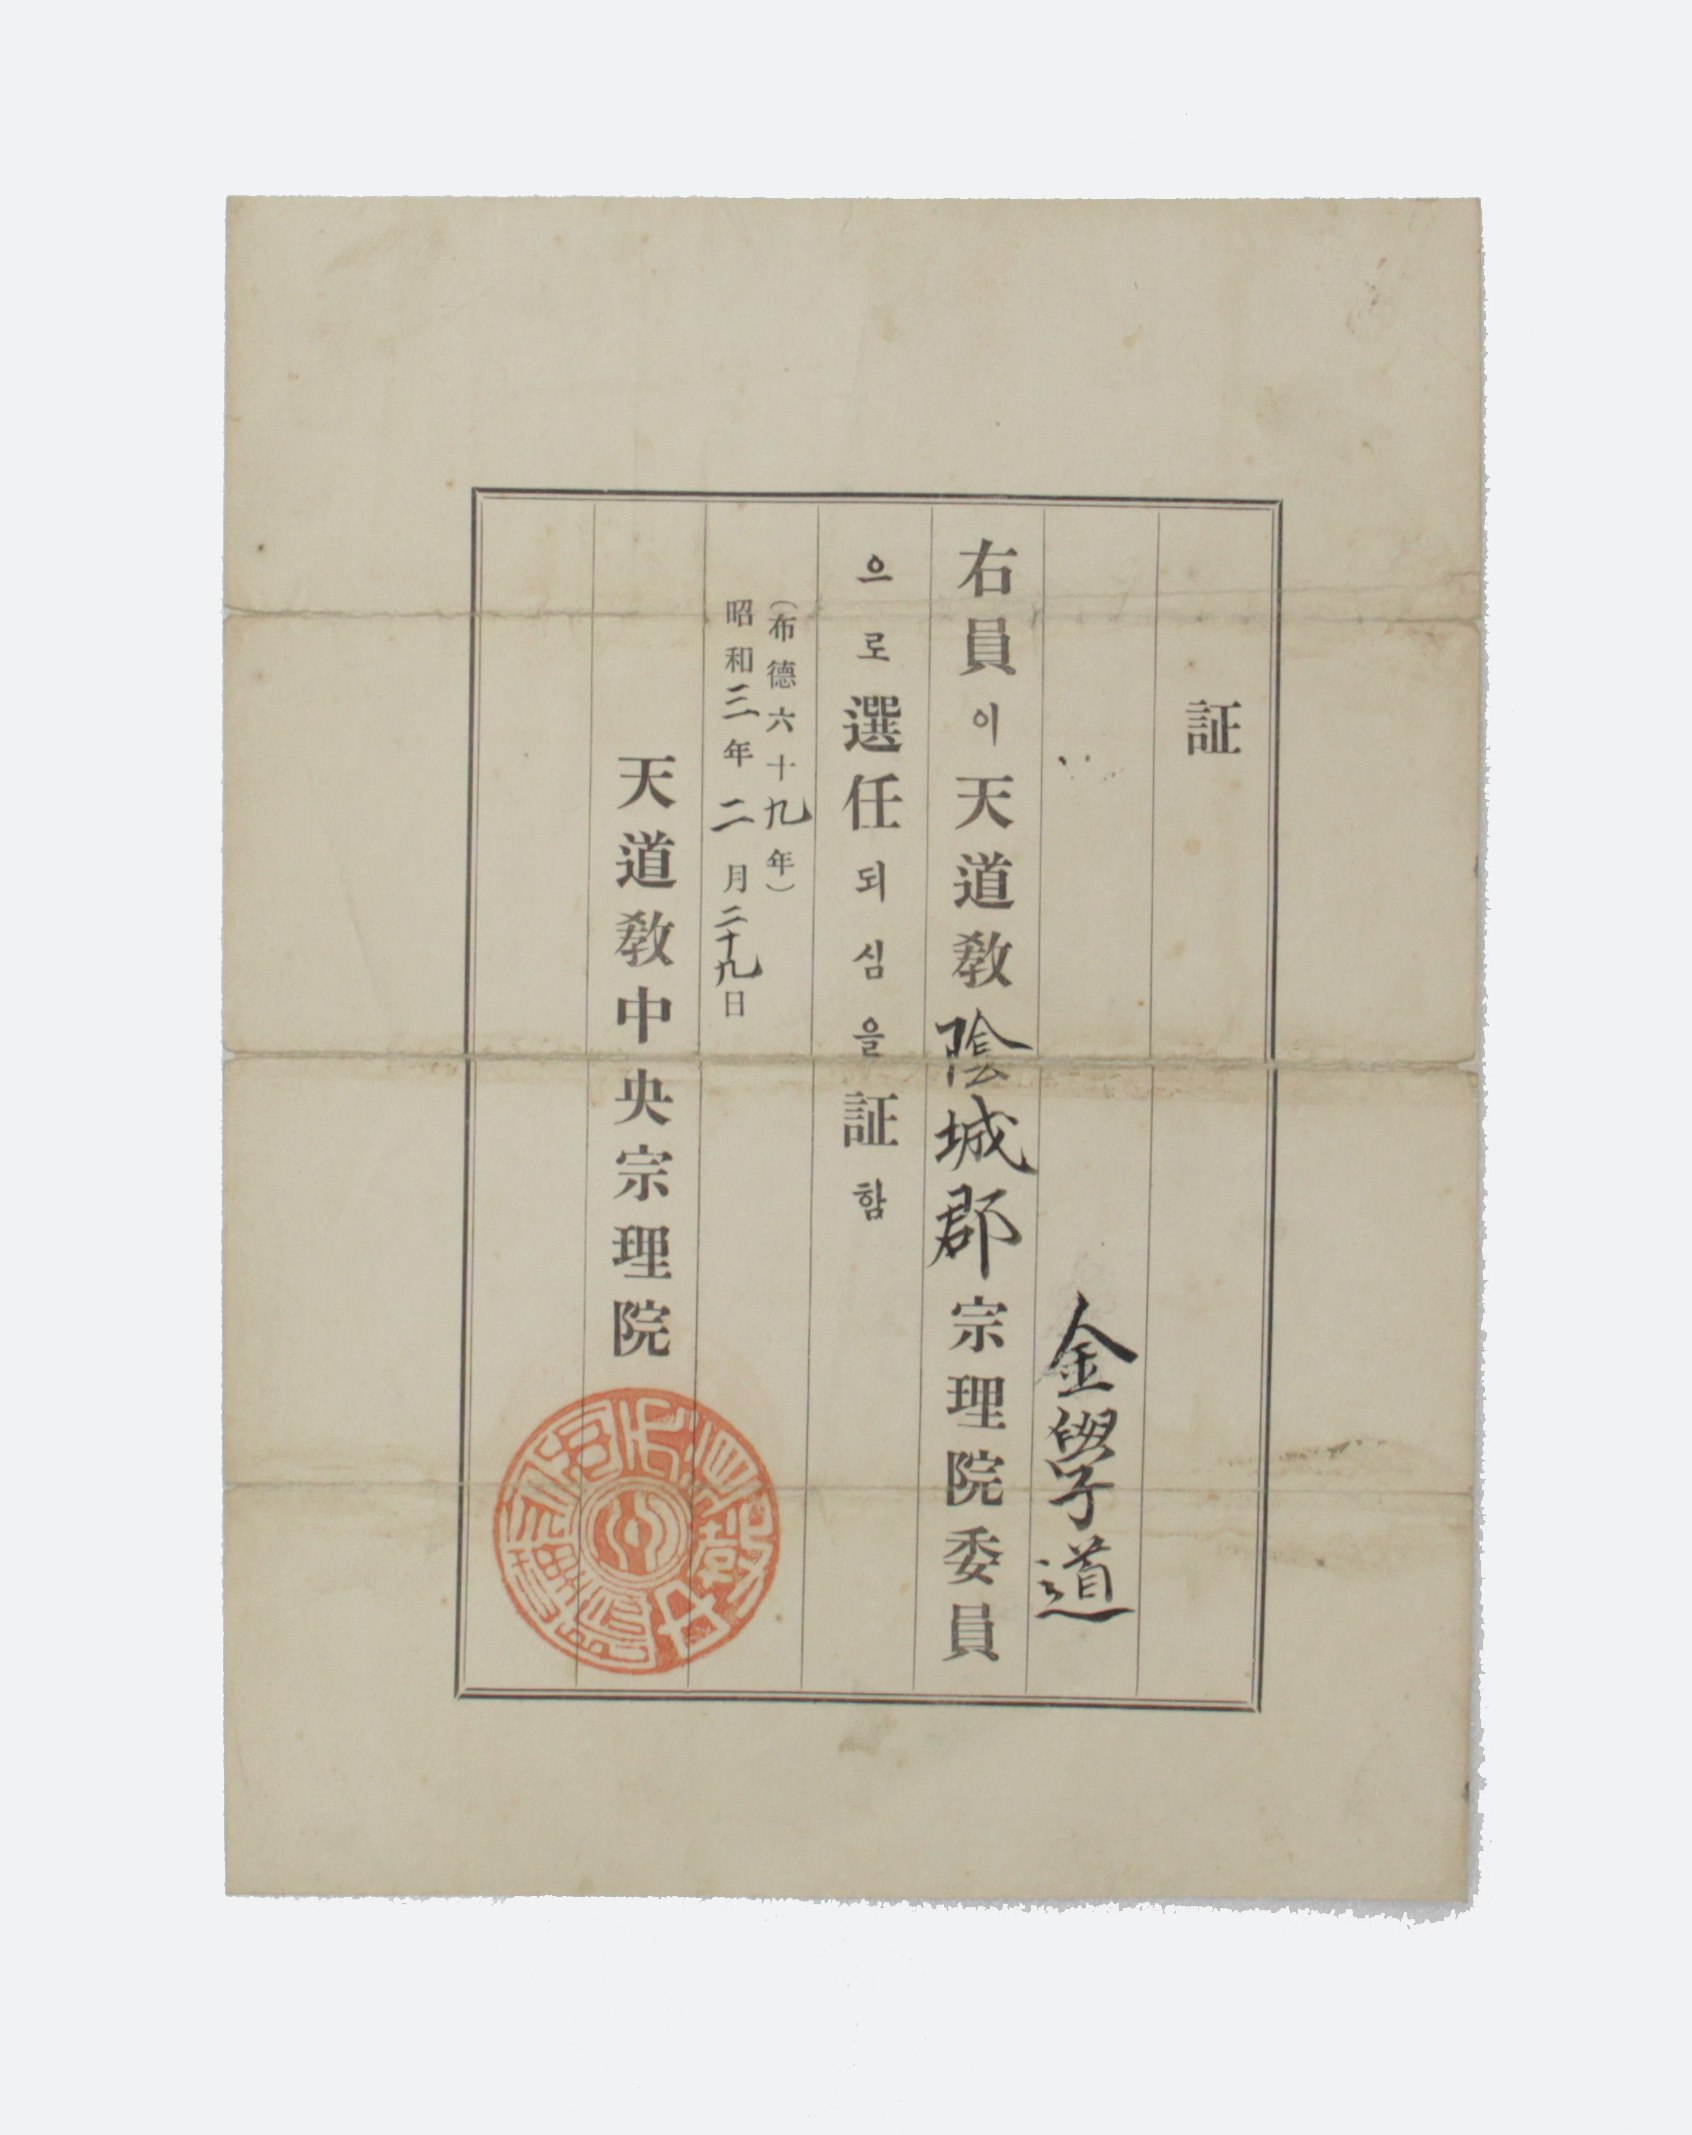 証
金學道
右員이天道敎陰城郡宗理院委員
으로選任되심을証함
(布德六十九年)
昭和三年二月二十九日
天道敎中央宗理院